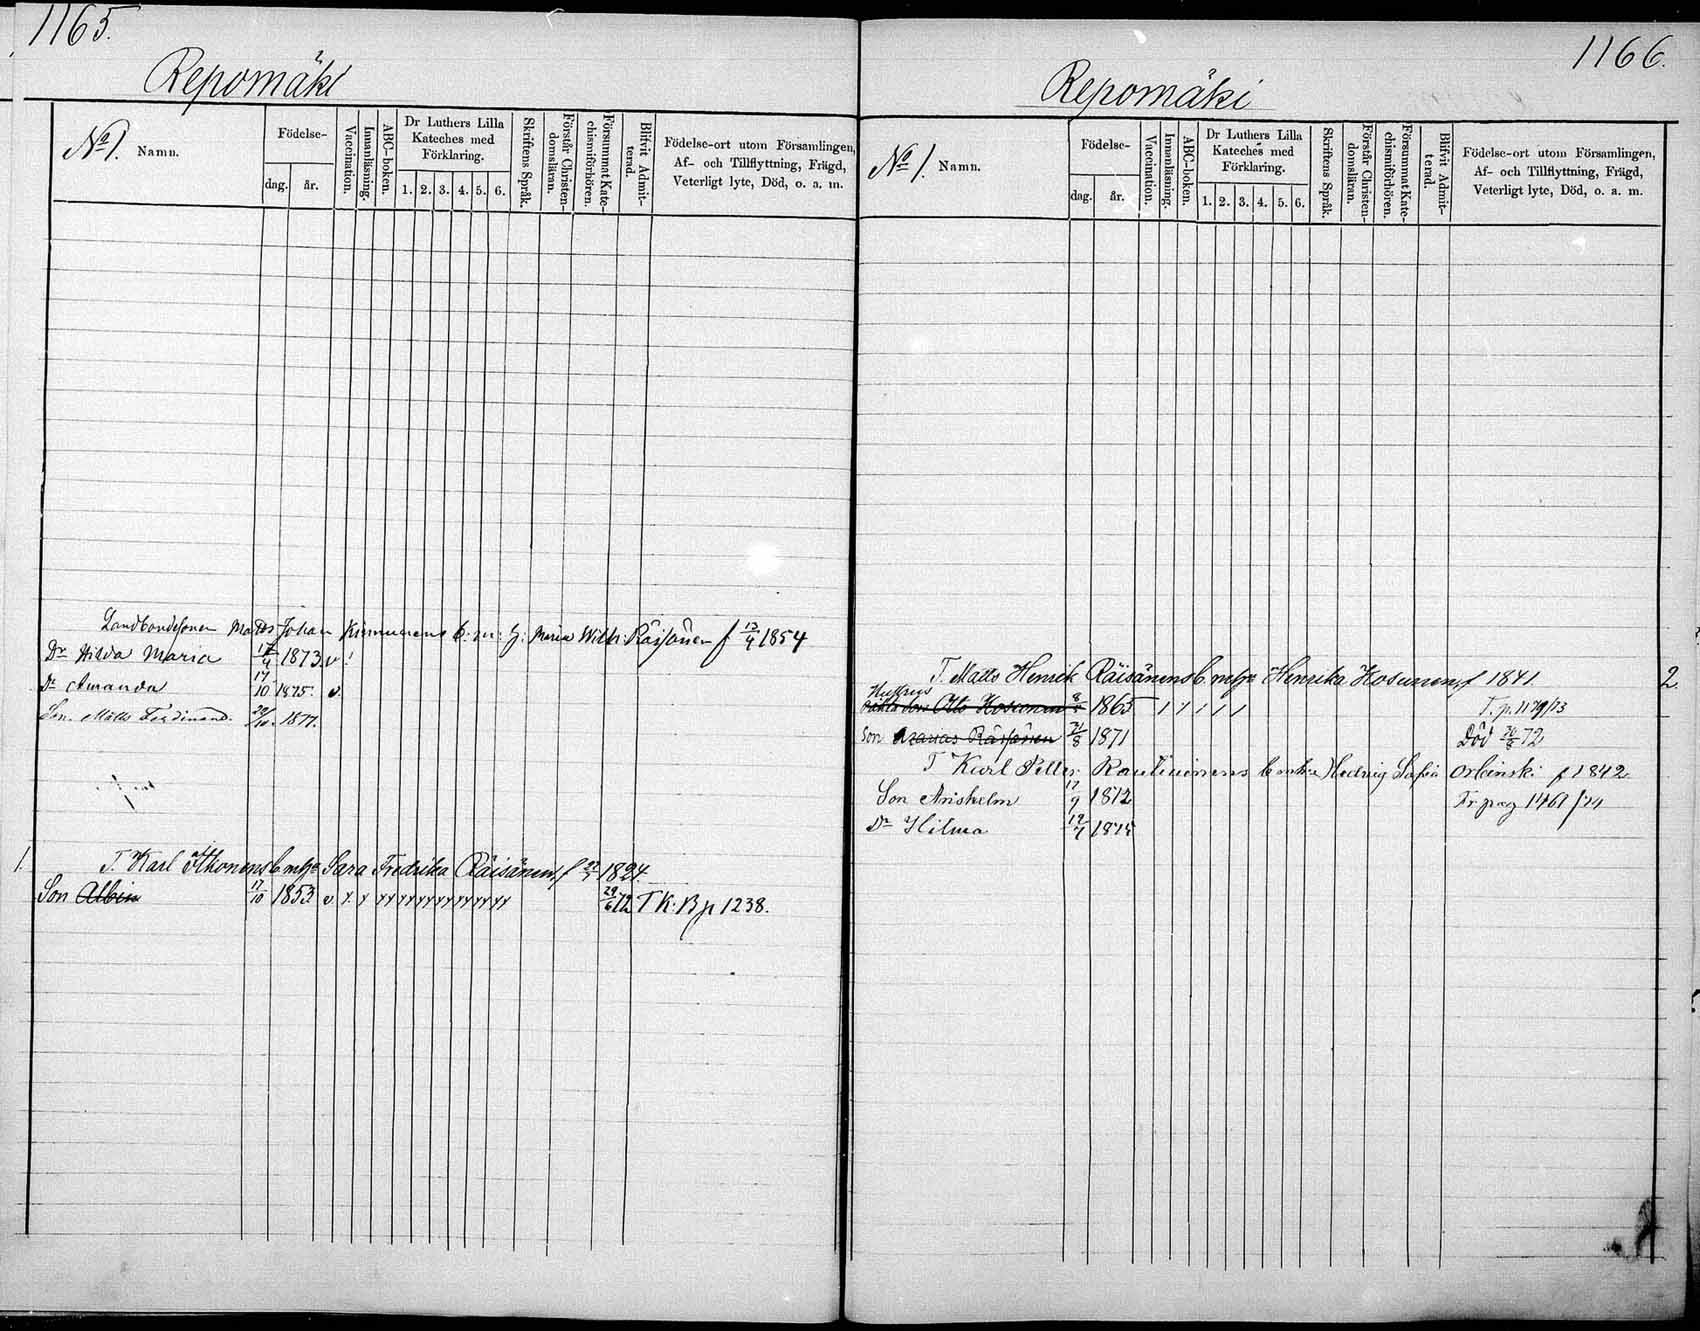 1165.
Repomäki
No 1. Namn.
Födelse-
dag. år.
Vaccination.
Innanläsning.
ABC-boken.
Dr Luthers Lilla Kateches med Förklaring.
1. 2. 3. 4. 5. 6.
Skriftens Språk.
Förstår Christen-domsläran.
Försummat Kate-chismiförhören.
Blifvit Admit-terad.
Födelse-ort utom Församlingen, Af- och Tillflyttning, Frägd, Veterligt lyte, Död, o. a. m.
Landbondesonen Matts Johan Kinnunens b. m. h: Maria Wilh: Räisänen f 13/4 1854
Dr Hilda Maria 1873 v !
Dr Amanda 17/10 1875. v.
Son. Matts Ferdinand. 1877.
1. T. Karl Ahonens b m h Sara Fredrika Räisänen, f 1824.
Son Albin 17/10 1853 v 29/6 72 T K: B p 1238.
1166.
Repomäki
No 1. Namn.
Födelse-
dag. år.
Vaccination.
Innanläsning.
ABC-boken.
Dr Luthers Lilla Kateches med Förklaring.
1. 2. 3. 4. 5. 6.
Skriftens Språk.
Förstår Christen-domsläran.
Försummat Kate-chismiförhören.
Blifvit Admit-terad.
Födelse-ort utom Församlingen, Af- och Tillflyttning, Frägd, Veterligt lyte, Död, o. a. m.
T. Matts Henrik Räisänens b. m h Henrika Hosunen, f 1841. 2.
Hustrus
Otto Hosunen 1865 T. p. 1179/73
Son Räisänen 21/8 1871 Död 72
T Karl Petter Rautiainens b m h Hedvig Sofia Orbinski f 1842
Son Anshelm 17/9 1872 Fr pag 1461/74
Dr Hilma 1875